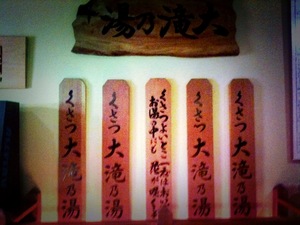 大滝乃湯
くさつ大滝乃湯
くさつ大滝乃湯
くさつよいとこ一度は
お湯の中にも花が咲くよ
くさつ大滝乃湯
くさつ大滝乃湯